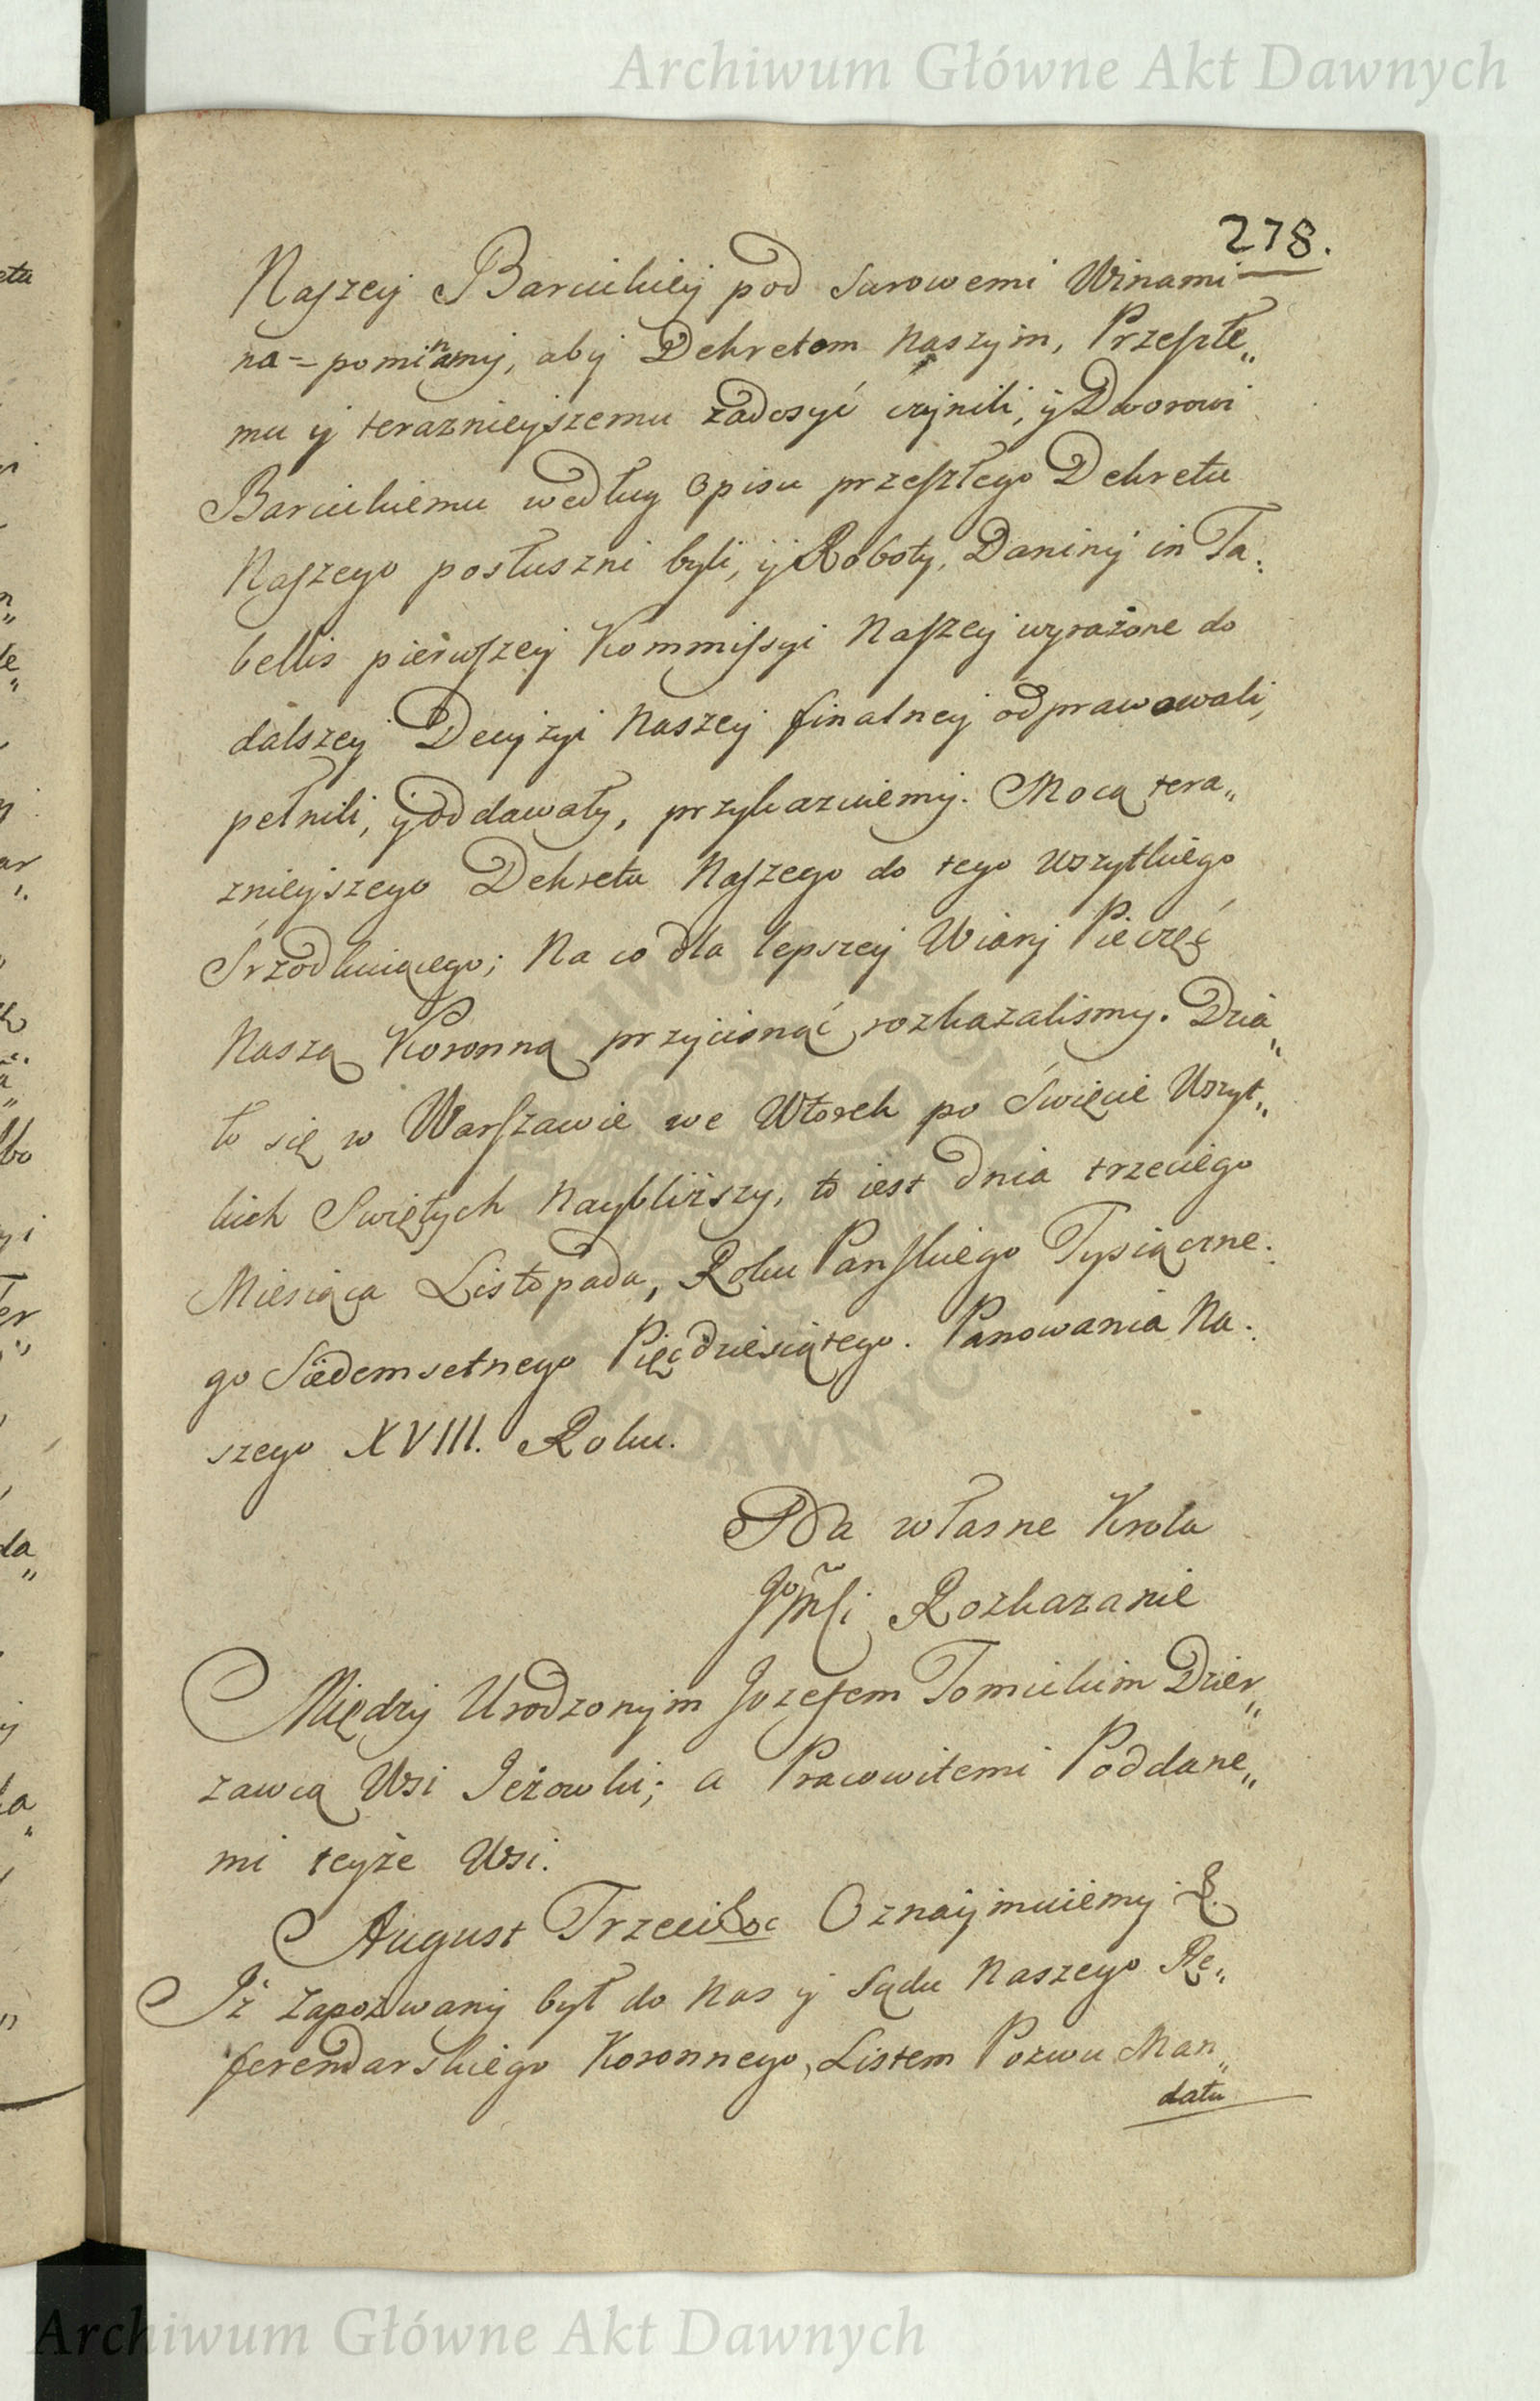 Archiwum Główne Akt Dawnych
278.
Naszey Barcickiey pod surowemi Winami
na=pominamy, aby Dekretom Naszym, Przeszłe„
mu y teraznieyszemu zadosyć czynili, y Dworowi
Barcickiemu według Opisu przeszłego Dekretu
Naszego posłuszni byli, y Roboty, Daniny in Ta:
bellis pierwszey Kommissyi Naszey wyrażone do
dalszey Decyzyi Naszey finalney odprawowali,
pełnili, y oddawały, przykazuiemy. Mocą tera„
znieyszego Dekretu Naszego do tego wszytkiego
Srzodkuiącego; Na co dla lepszey Wiary Pieczęć
Naszą Koronną przycisnąć rozkazalismy. Dzia„
ło się w Warszawie we Wtorek po Święcie Wszyt„
kich Swiętych Naybliższy, to iest Dnia trzeciego
Miesiąca Listopada, Roku Panskiego Tysiączne:
go Siedemsetnego Pięćdziesiątego. Panowania Na:
szego XVIII. Roku.
Na własne Krola
JgoMsci Rozkazanie
Między Urodzonym Jozefem Tomickim Dzier„
zawcą Wsi Jeżowki; a Pracowitemi Poddane„
mi teyże Wsi.
August Trzeci &c Oznaymuiemy &.
Iż Zapozwany był do Nas y Sądu Naszego Re„
ferendarskiego Koronnego, Listem Pozwu Man„
datu
Archiwum Główne Akt Dawnych